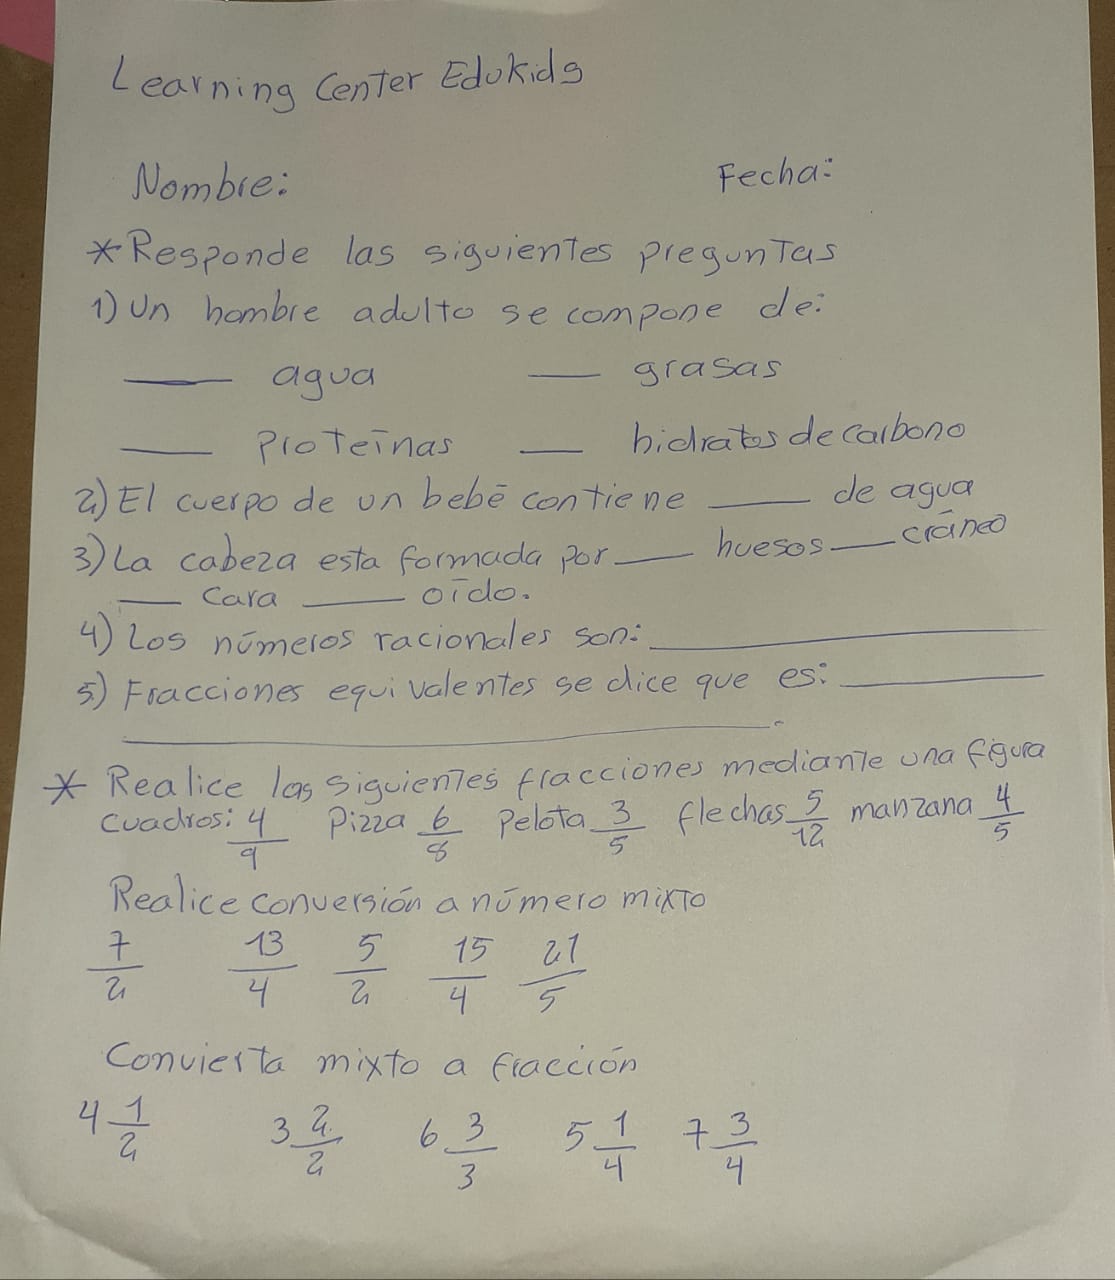 Learning Center Edukids
Nombre: Fecha:
*Responde las siguientes preguntas
1) Un hombre adulto se compone de:
____ agua ____ grasas
____ Proteínas ____ hidratos de carbono
2) El cuerpo de un bebé contiene ____ de agua
3) La cabeza esta formada por ____ huesos ____ cráneo
____ Cara ____ oído.
4) Los números racionales son: ____
5) Fracciones equivalentes se dice que es: ____
____.
* Realice las siguientes fracciones mediante una figura
Cuadros: 4/9 Pizza 6/8 Pelota 3/5 flechas 5/12 manzana 4/5
Realice conversión a número mixto
7/2 13/4 5/2 15/4 21/5
Convierta mixto a fracción
4 1/2 3 2/2 6 3/3 5 1/4 7 3/4